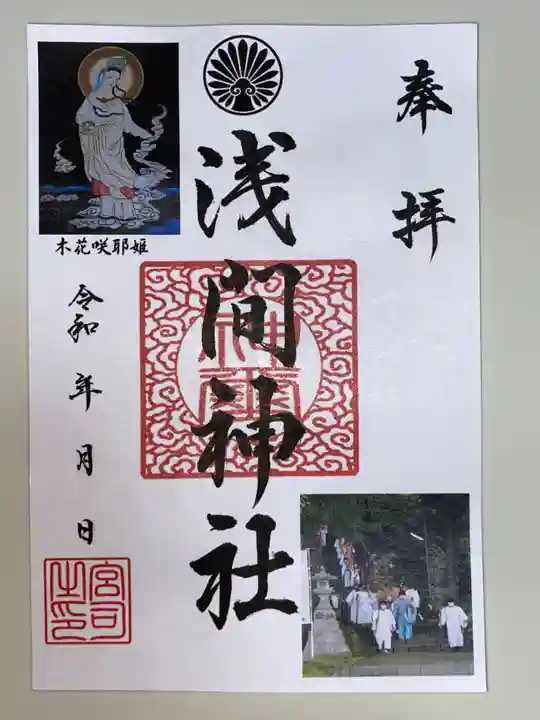 奉拝
浅間神社
神璽
木花咲耶姫
令和 年 月 日
宮司之印